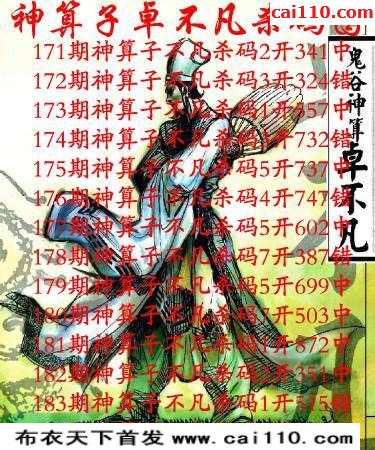 cai110.com
神算子卓不凡杀码
171期神算子不凡杀码2开341中
172期神算子不凡杀码3开324错
173期神算子不凡杀码1开357中
174期神算子不凡杀码 开732
175期神算子不凡杀码5开737中
176期神算子不凡杀码4开747错
177期神算子不凡杀码5开602中
178期神算子不凡杀码7开387错
179期神算子不凡杀码5开699中
180期神算子不凡杀码7开503中
181期神算子不凡杀码1开872中
182期神算子不凡杀码2开351中
183期神算子不凡杀码1开515错
鬼谷神算
卓不凡
布衣天下首发 www.cai110.com